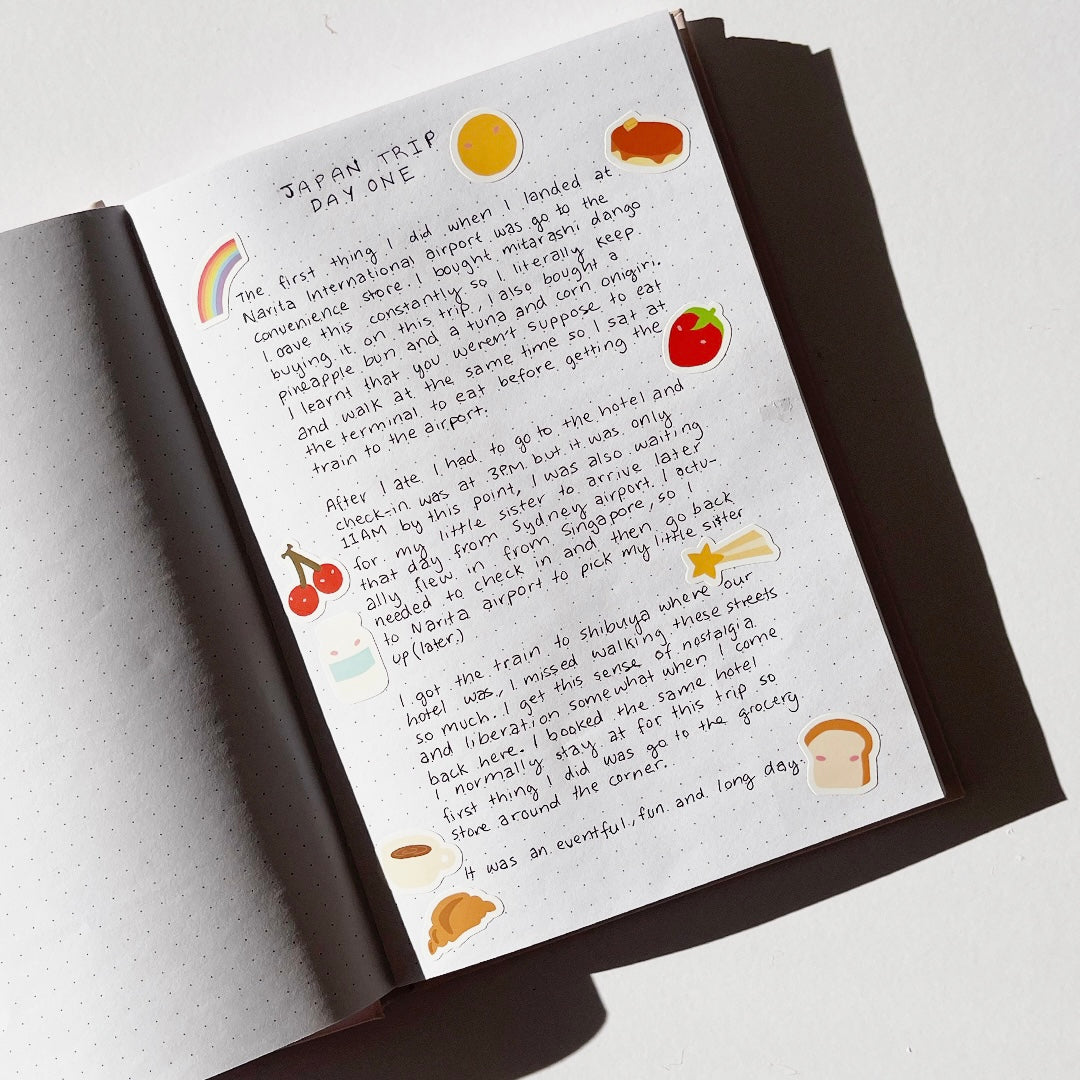 JAPAN TRIP
DAY ONE
The first thing I did when I landed at
Narita International airport was go to the
convenience store. I bought mitarashi dango
I crave this constantly so I literally keep
buying it on this trip, I also bought a
pineapple bun and a tuna and corn onigiri.
I learnt that you weren't suppose to eat
and walk at the same time so I sat at
the terminal to eat before getting the
train to the airport.
After I ate I had to go to the hotel and
check-in was at 3PM but it was only
11AM by this point, I was also waiting
for my little sister to arrive later
that day from Sydney airport. I actu-
ally flew in from Singapore, so I
needed to check in and then go back
to Narita airport to pick my little sister
up (later.)
I got the train to shibuya where our
hotel was, I missed walking these streets
so much. I get this sense of nostalgia
and liberation somewhat when I come
back here. I booked the same hotel
I normally stay at for this trip so
first thing I did was go to the grocery
store around the corner.
It was an eventful, fun and long day.